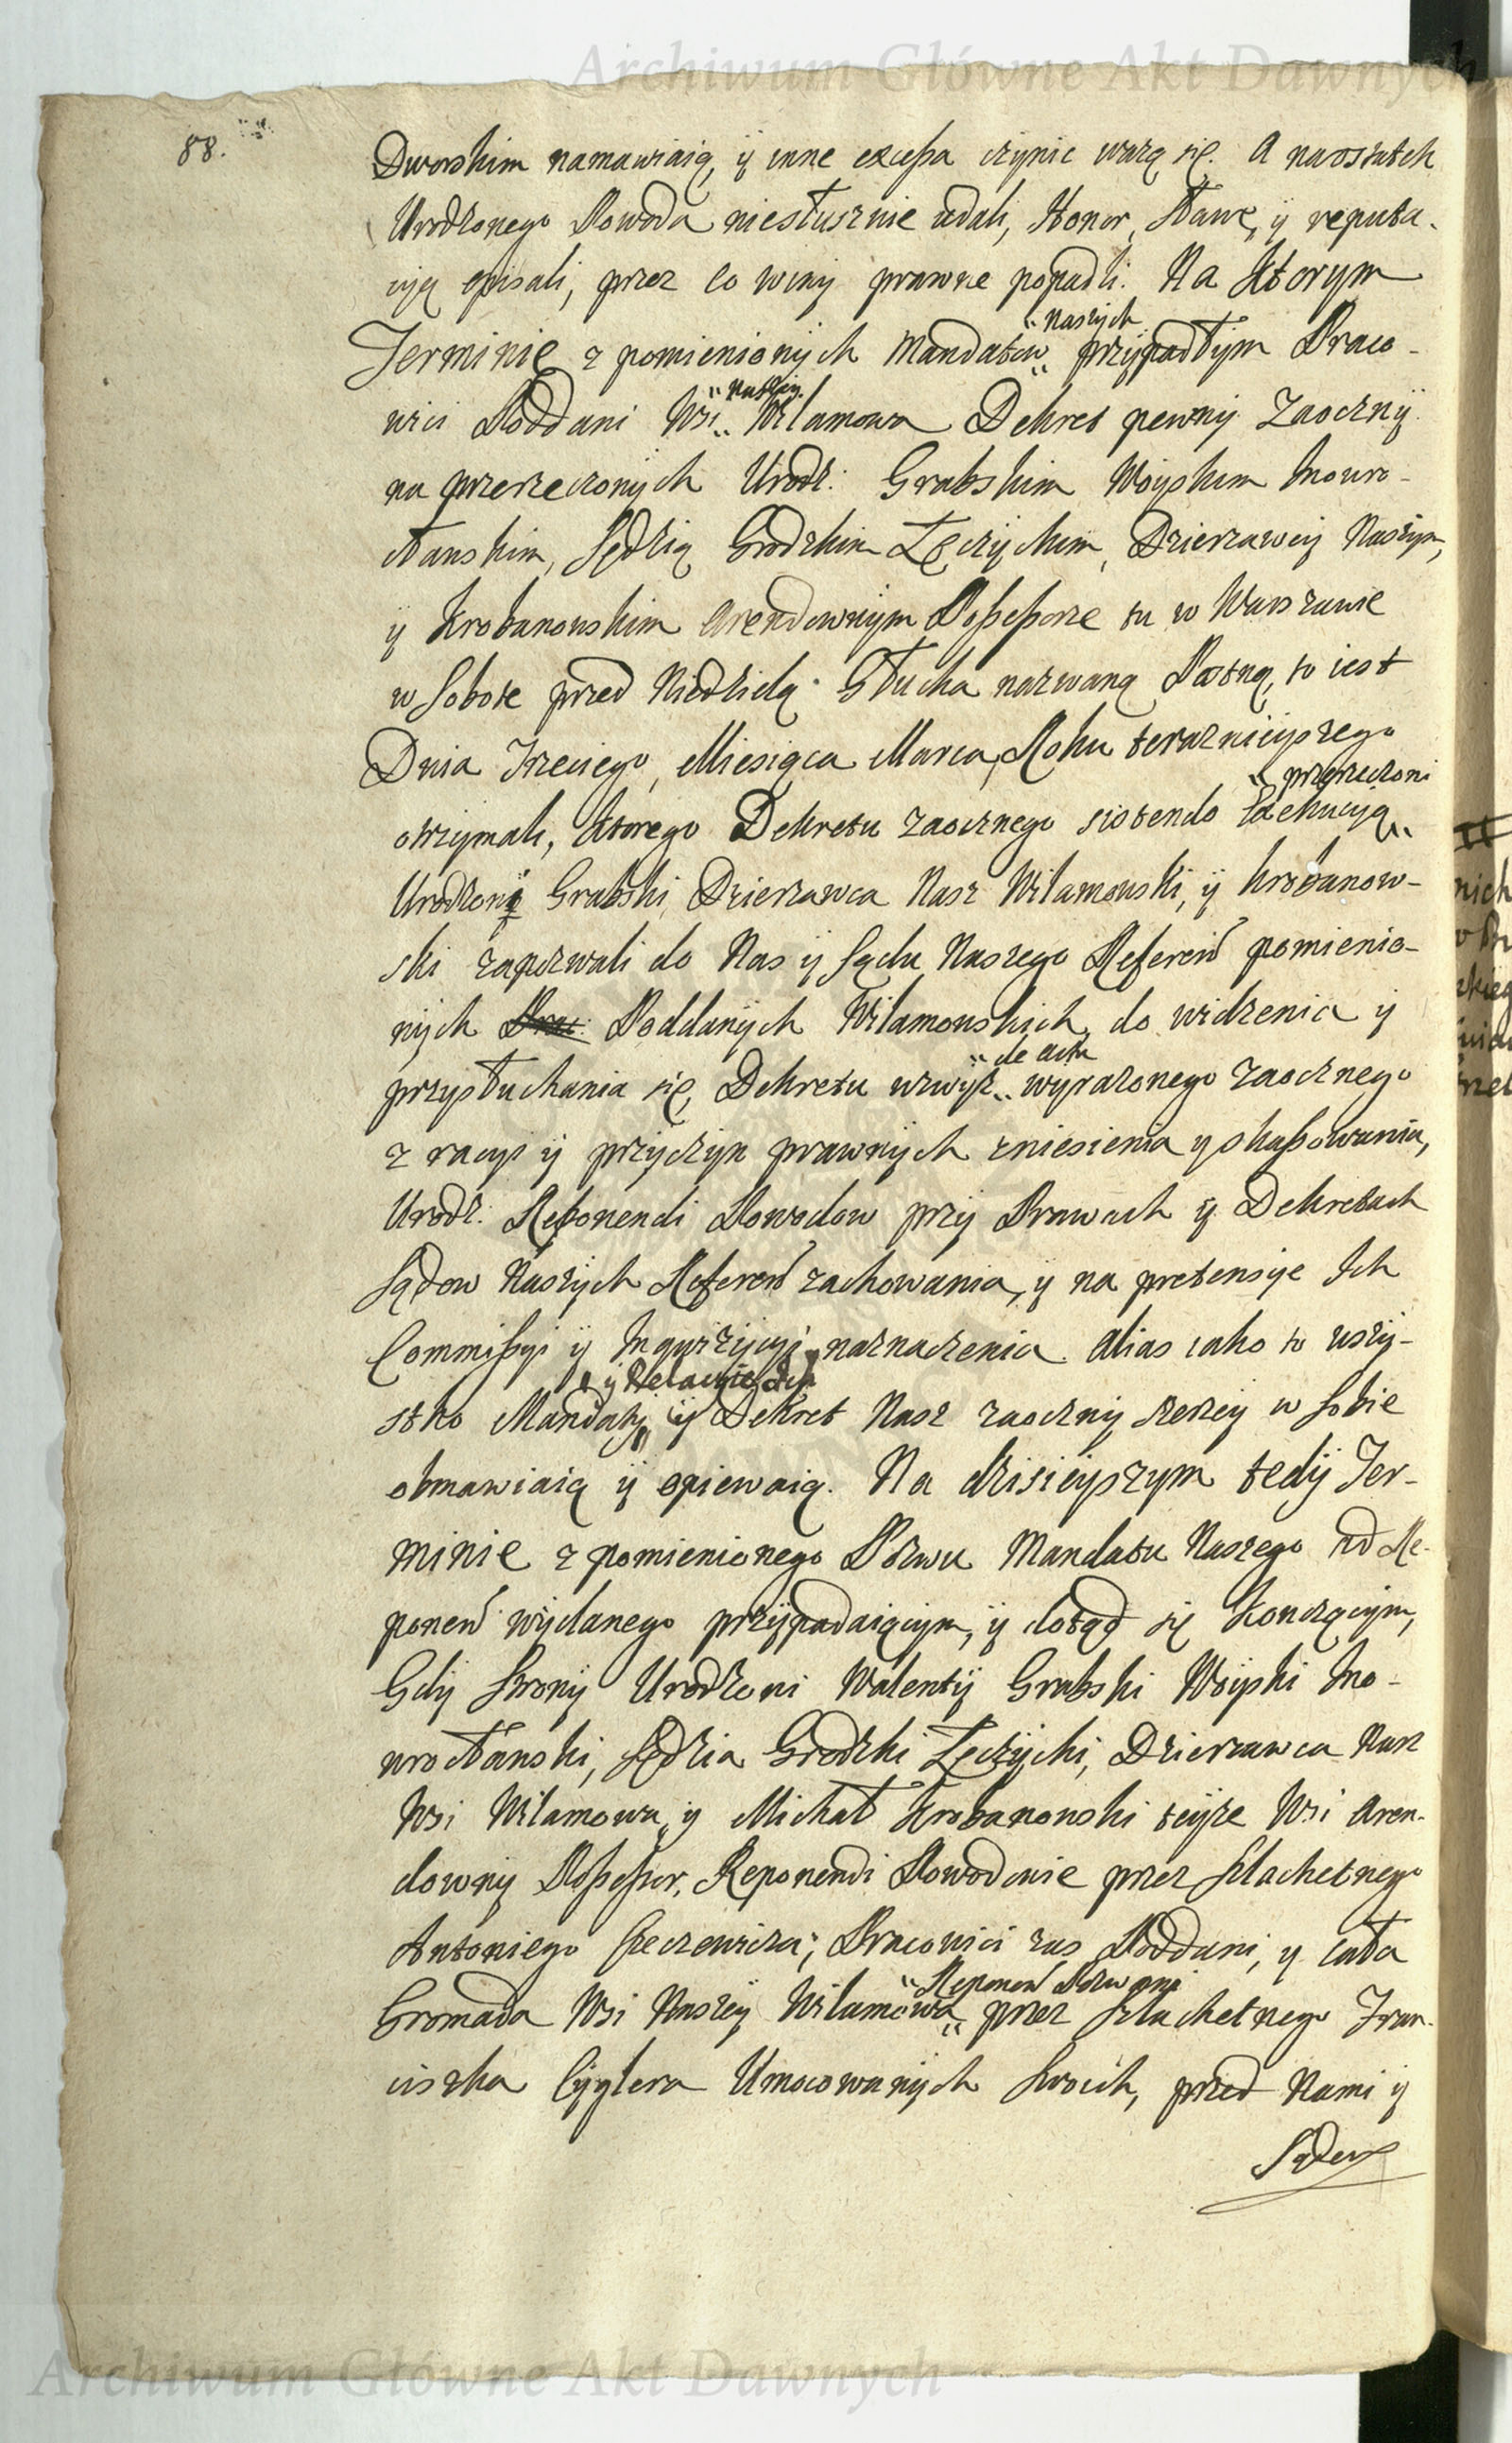 Archiwum Główne Akt Dawnych
88.
Dworskim namawiaią, ÿ inne excessa czynic ważą się. A naostatek
Urodzonego Powoda niesłusznie udali, Honor, sławę, ÿ reputa-
cyę opisali, przez co winy prawne popadli. Na ktorym
" naszych
Terminie z pomienionych Mandatow „ przypadłym Praco-
" naszey
wici Poddani Wsi „ Wilamowa Dekret pewny zaoczny
na przerzeczonych Urodz: Grabskim Woyskim Inowro-
cławskim, Sędzią Grodzkim Łęczyckim, Dzierzawcy Naszym,
ÿ Krobanowskim arendownym Possessorze tu w Warszawie
w Sobotę przed Niedzielą Głucha nazwaną Postną, to iest
Dnia Trzeciego, Miesiąca Marca, Roku teraznieyszego
" przerzeczoni
otrzymali, ktorego Dekretu zaocznego siotendo Exekucyą „
Urodzony Grabski Dzierzawca Nasz Wilamowski, ÿ Krobanow-
ski zapozwali do Nas ÿ Sądu Naszego Referen pomienio-
nych Prac: Poddanych Wilamowskich, do widzenia ÿ
" de actu
przysłuchania się, Dekretu wzwyż „ wyrażonego zaocznego
z racyi ÿ przyczyn prawnych zniesienia y skassowania,
Urodz. Reponendi Powodow przy Prawach ÿ Dekretach
Sądow Naszych Referen zachowania, ÿ na pretensye Ich
Commissyi ÿ Inqwizycyi naznaczenia. Alias iako to wszy-
ÿ Relacye
stko Mandaty „ ÿ Dekret Nasz zaoczny szerzey w sobie
obmawiaią ÿ opiewaią. Na dzisieyszym tedy Ter-
minie z pomienionego Pozwu Mandatu Naszego ad Re-
ponen wydanego przypadaiącym, ÿ dotąd się kończącym,
Gdy Strony Urodzoni Walenty Grabski Woyski Ino-
wrocławski, Sędzia Grodzki Łęczycki, Dzierzawca Nasz
Wsi Wilamowa, ÿ Michał Krobanowski teyże Wsi Aren-
downy Possessor, Reponendi Powodowie przez Szlachetnego
Antoniego Szczewicza; Pracowici zas Poddani, y cała
" Reponen Pozwani
Gromada Wsi Naszey Wilamowa „ przez Szlachetnego Fran-
ciszka Cyglera Umocowanych swoich, przed Nami ÿ
Sądem
Archiwum Główne Akt Dawnych